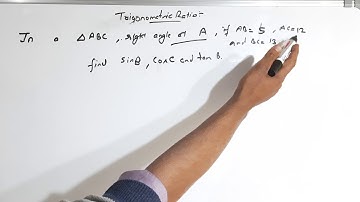 Trigonometric Ratios
In a △ABC, right angle at A, if AB= 5, AC=12
and BC= 13
find sinB, cosC and tan B.